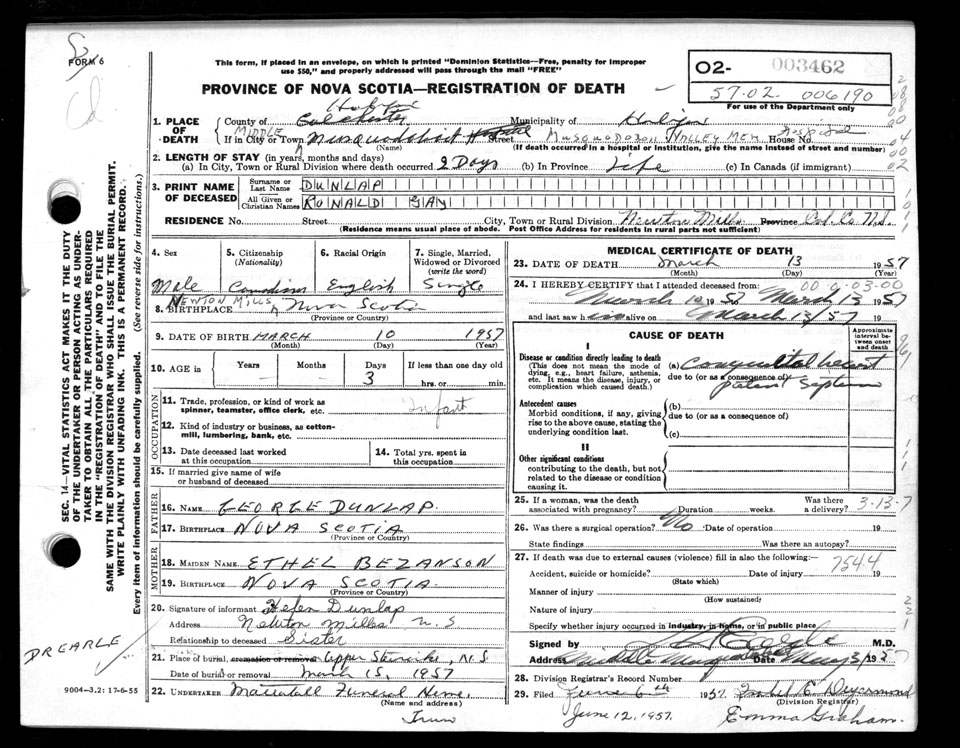 FORM 6
This form, if placed in an envelope, on which is printed "Dominion Statistics—Free, penalty for improper
use $50," and properly addressed will pass through the mail "FREE"
O2- 003462
57.02. 006190
For use of the Department only
PROVINCE OF NOVA SCOTIA—REGISTRATION OF DEATH
1. PLACE OF DEATH
Halifax
County of Colchester Municipality of Halifax
If in City or Town MIDDLE Musquodoboit Street MUSQUODOBOIT VALLEY MEM. Hospital House No.
(Name) (If death occurred in a hospital or institution, give the name instead of street and number)
2. LENGTH OF STAY (in years, months and days)
(a) In City, Town or Rural Division where death occurred 2 Days (b) In Province Life (c) In Canada (if immigrant)
3. PRINT NAME OF DECEASED
Surname or Last Name DUNLAP
All Given or Christian Names RONALD GAY
RESIDENCE No. Street City, Town or Rural Division Newton Mills Province Col. Co. N.S.
(Residence means usual place of abode. Post Office Address for residents in rural parts not sufficient)
4. Sex Male
5. Citizenship (Nationality) Canadian
6. Racial Origin English
7. Single, Married, Widowed or Divorced (write the word) Single
8. BIRTHPLACE NEWTON MILLS Nova Scotia
(Province or Country)
9. DATE OF BIRTH MARCH 10 1957
(Month) (Day) (Year)
10. AGE in Years — Months — Days 3 If less than one day old hrs. or min.
OCCUPATION
11. Trade, profession, or kind of work as spinner, teamster, office clerk, etc. Infant
12. Kind of industry or business, as cotton-mill, lumbering, bank, etc.
13. Date deceased last worked at this occupation
14. Total yrs. spent in this occupation
15. If married give name of wife or husband of deceased
FATHER
16. NAME GEORGE DUNLAP.
17. BIRTHPLACE NOVA SCOTIA
(Province or Country)
MOTHER
18. MAIDEN NAME ETHEL BEZANSON
19. BIRTHPLACE NOVA SCOTIA.
(Province or Country)
20. Signature of informant Helen Dunlap
Address Newton Mills N.S
Relationship to deceased Sister
21. Place of burial, cremation or removal Upper Stewiacke, N.S
Date of burial or removal March 15, 1957
22. UNDERTAKER Mattatall Funeral Home.
(Name and address)
Truro
MEDICAL CERTIFICATE OF DEATH
23. DATE OF DEATH March 13 1957
(Month) (Day) (Year)
24. I HEREBY CERTIFY that I attended deceased from: 00 9-03-00
March 10 1957 March 13 1957
and last saw him alive on March 13/57 19
CAUSE OF DEATH
Approximate interval between onset and death
I
Disease or condition directly leading to death
(This does not mean the mode of dying, e.g., heart failure, asthenia, etc. It means the disease, injury, or complication which caused death.)
(a) Congenital heart
due to (or as a consequence of) patent Septum
Antecedent causes
Morbid conditions, if any, giving rise to the above cause, stating the underlying condition last.
(b)
due to (or as a consequence of)
(c)
II
Other significant conditions
contributing to the death, but not related to the disease or condition causing it.
25. If a woman, was the death associated with pregnancy? Duration weeks. Was there a delivery? 3-13-7
26. Was there a surgical operation? No Date of operation 19
State findings Was there an autopsy?
27. If death was due to external causes (violence) fill in also the following: 7544
Accident, suicide or homicide? Date of injury 19
(State which)
Manner of injury
(How sustained)
Nature of injury
Specify whether injury occurred in industry, in home, or in public place
Signed by M.D.
Address Middle Musq Date 1957
28. Division Registrar's Record Number
29. Filed June 6th 1957.
(Division Registrar)
June 12, 1957. Emma Graham.
SEC. 14—VITAL STATISTICS ACT MAKES IT THE DUTY
OF THE UNDERTAKER OR PERSON ACTING AS UNDER-
TAKER TO OBTAIN ALL THE PARTICULARS REQUIRED
IN THE "REGISTRATION OF DEATH" AND TO FILE THE
SAME WITH THE DIVISION REGISTRAR WHO SHALL ISSUE THE BURIAL PERMIT.
WRITE PLAINLY WITH UNFADING INK. THIS IS A PERMANENT RECORD.
Every item of information should be carefully supplied. (See reverse side for instructions.)
DREARLE
9004—3.2: 17-6-55